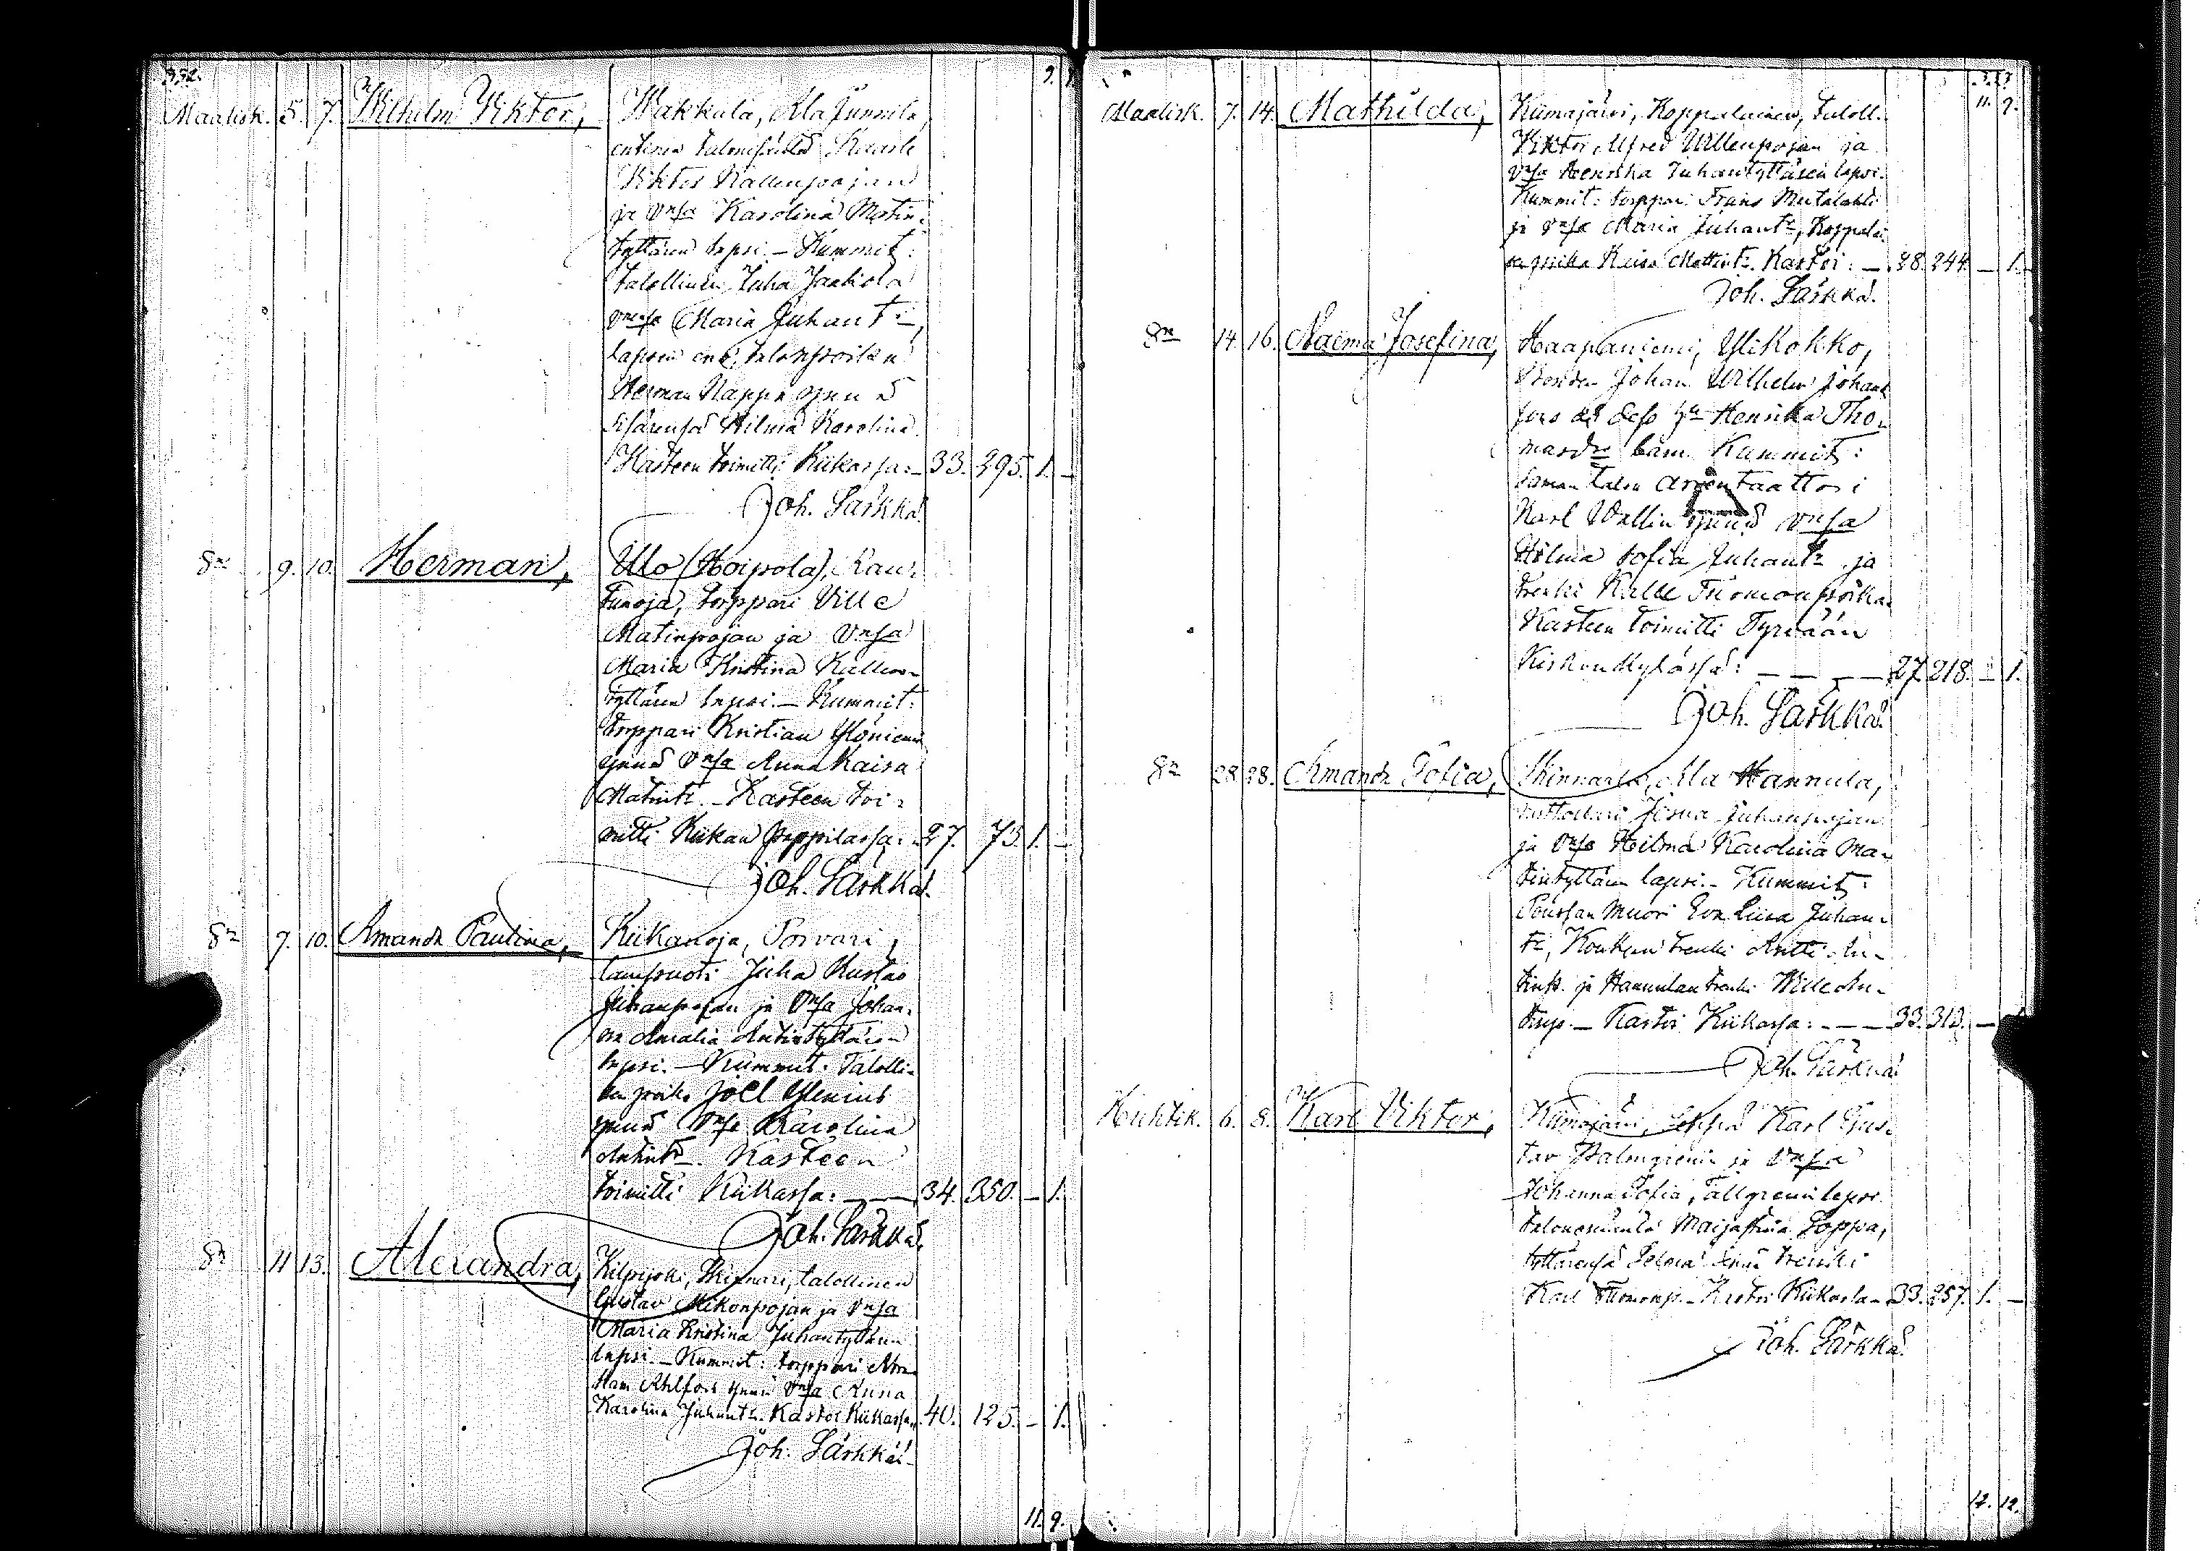 352.
9.
Maalisk. 5. 7. Wilhelm Viktor, Wakkala, Ala Junnila,
entinen talonisäntä Kaarle
Viktor Kallenpojan
ja vmsa Karolina Matin-
tyttären lapsi. — Kummit:
talollinen Juha Jaakola
vmsa Maria Juhant:,
lapsen eno, talonpoika
Herman Nappa ynnä
sisärensä Hilma Karolina
Kasteen toimitti Kiikassa: — 33. 295. 1. —
Joh. Särkkä.
Sn 9. 10. Herman, Ulo (Hoipola), Rau-
tunoja, torppari Ville
Matinpojan ja vmsa
Maria Kristina Kallen-
tyttären lapsi. — Kummit:
torppari Kristian Yliniemi
ynnä vmsa Anna Kaisa
Matint. — Kasteen toi-
mitti Kiikan pappilassa: — 27. 73. 1. —
Joh. Särkkä.
Sn 7. 10. Amanda Paulina, Kiikanoja, Porvari,
lampuoti Juha Kustaa
Juhanpojan ja vmsa Johan-
na Amalia Antintyttären
lapsi. — Kummit: Talolli-
sen poika Joel Ylenius
ynnä vmsa Karolina
Antint. Kasteen
toimitti Kiikassa: — 34. 350. — 1.
Joh. Särkkä.
Sn 11 13. Alexandra, Kilpijoki, Skinnari, talollinen
Gustav Mikonpojan ja vmsa
Maria Kristina Juhantyttären
lapsi. — Kummit: torppari Abra-
ham Ahlfors ynnä vmsa Anna
Karolina Juhant. Kastoi Kiikassa 40. 125. — 1.
Joh. Särkkä.
11. 9.
11. 9.
Maalisk. 7. 14. Mathilda, Kiimajärvi, Koppalainen, taloll.
Viktor Alfred Willenpojan ja
vmsa Henrika Juhantyttären lapsi.
Kummit: torppari Frans Metsalahti
ja vmsa Maria Juhant., Koppalai
Kaisa Mattint. Kastoi: — 28. 244. — 1.
Joh. Särkkä.
Sn 14. 16. Naëma Josefina, Haapaniemi, Ylikokko,
Bonden Johan Wilhelm Johans
fors och dess h:u Henrika Tho-
masdr barn. Kummit:
saman talon arentaattori
Karl Wallin ynnä vmsa
Hilma Sofia Juhant. ja
trenki Kalle Tuomonpoika.
Kasteen toimitti Tyrvään
Kiskonkylässä: — — — 27. 218. — 1.
Joh. Särkkä.
Sn 28. 28. Amanda Sofia, Skinnarla, Ala Hannula,
Josua Juhanpojan
ja vmsa Hilma Karolina Ma-
tintyttären lapsi. — Kummit:
Muori Eva Liisa Juhan-
t., trenki Antti An-
tinp. ja Hannulan trenki Wille An-
tinp. — Kastoi Kiikassa: — — 33. 313. —
Joh. Särkkä.
Huhtik. 6. 8. Karl Viktor, Kiimajärvi, Seppä Karl Gus-
tav Palmgrenin ja vmsa
Johanna Sofia Tallgrenin lapsi.
talonemäntä Maijastiina Loppa,
tyttärensä Selma trenki
Karl Tuomonp. — Kastoi Kiikassa — 33. 257. 1. —
Joh. Särkkä.
12. 12.